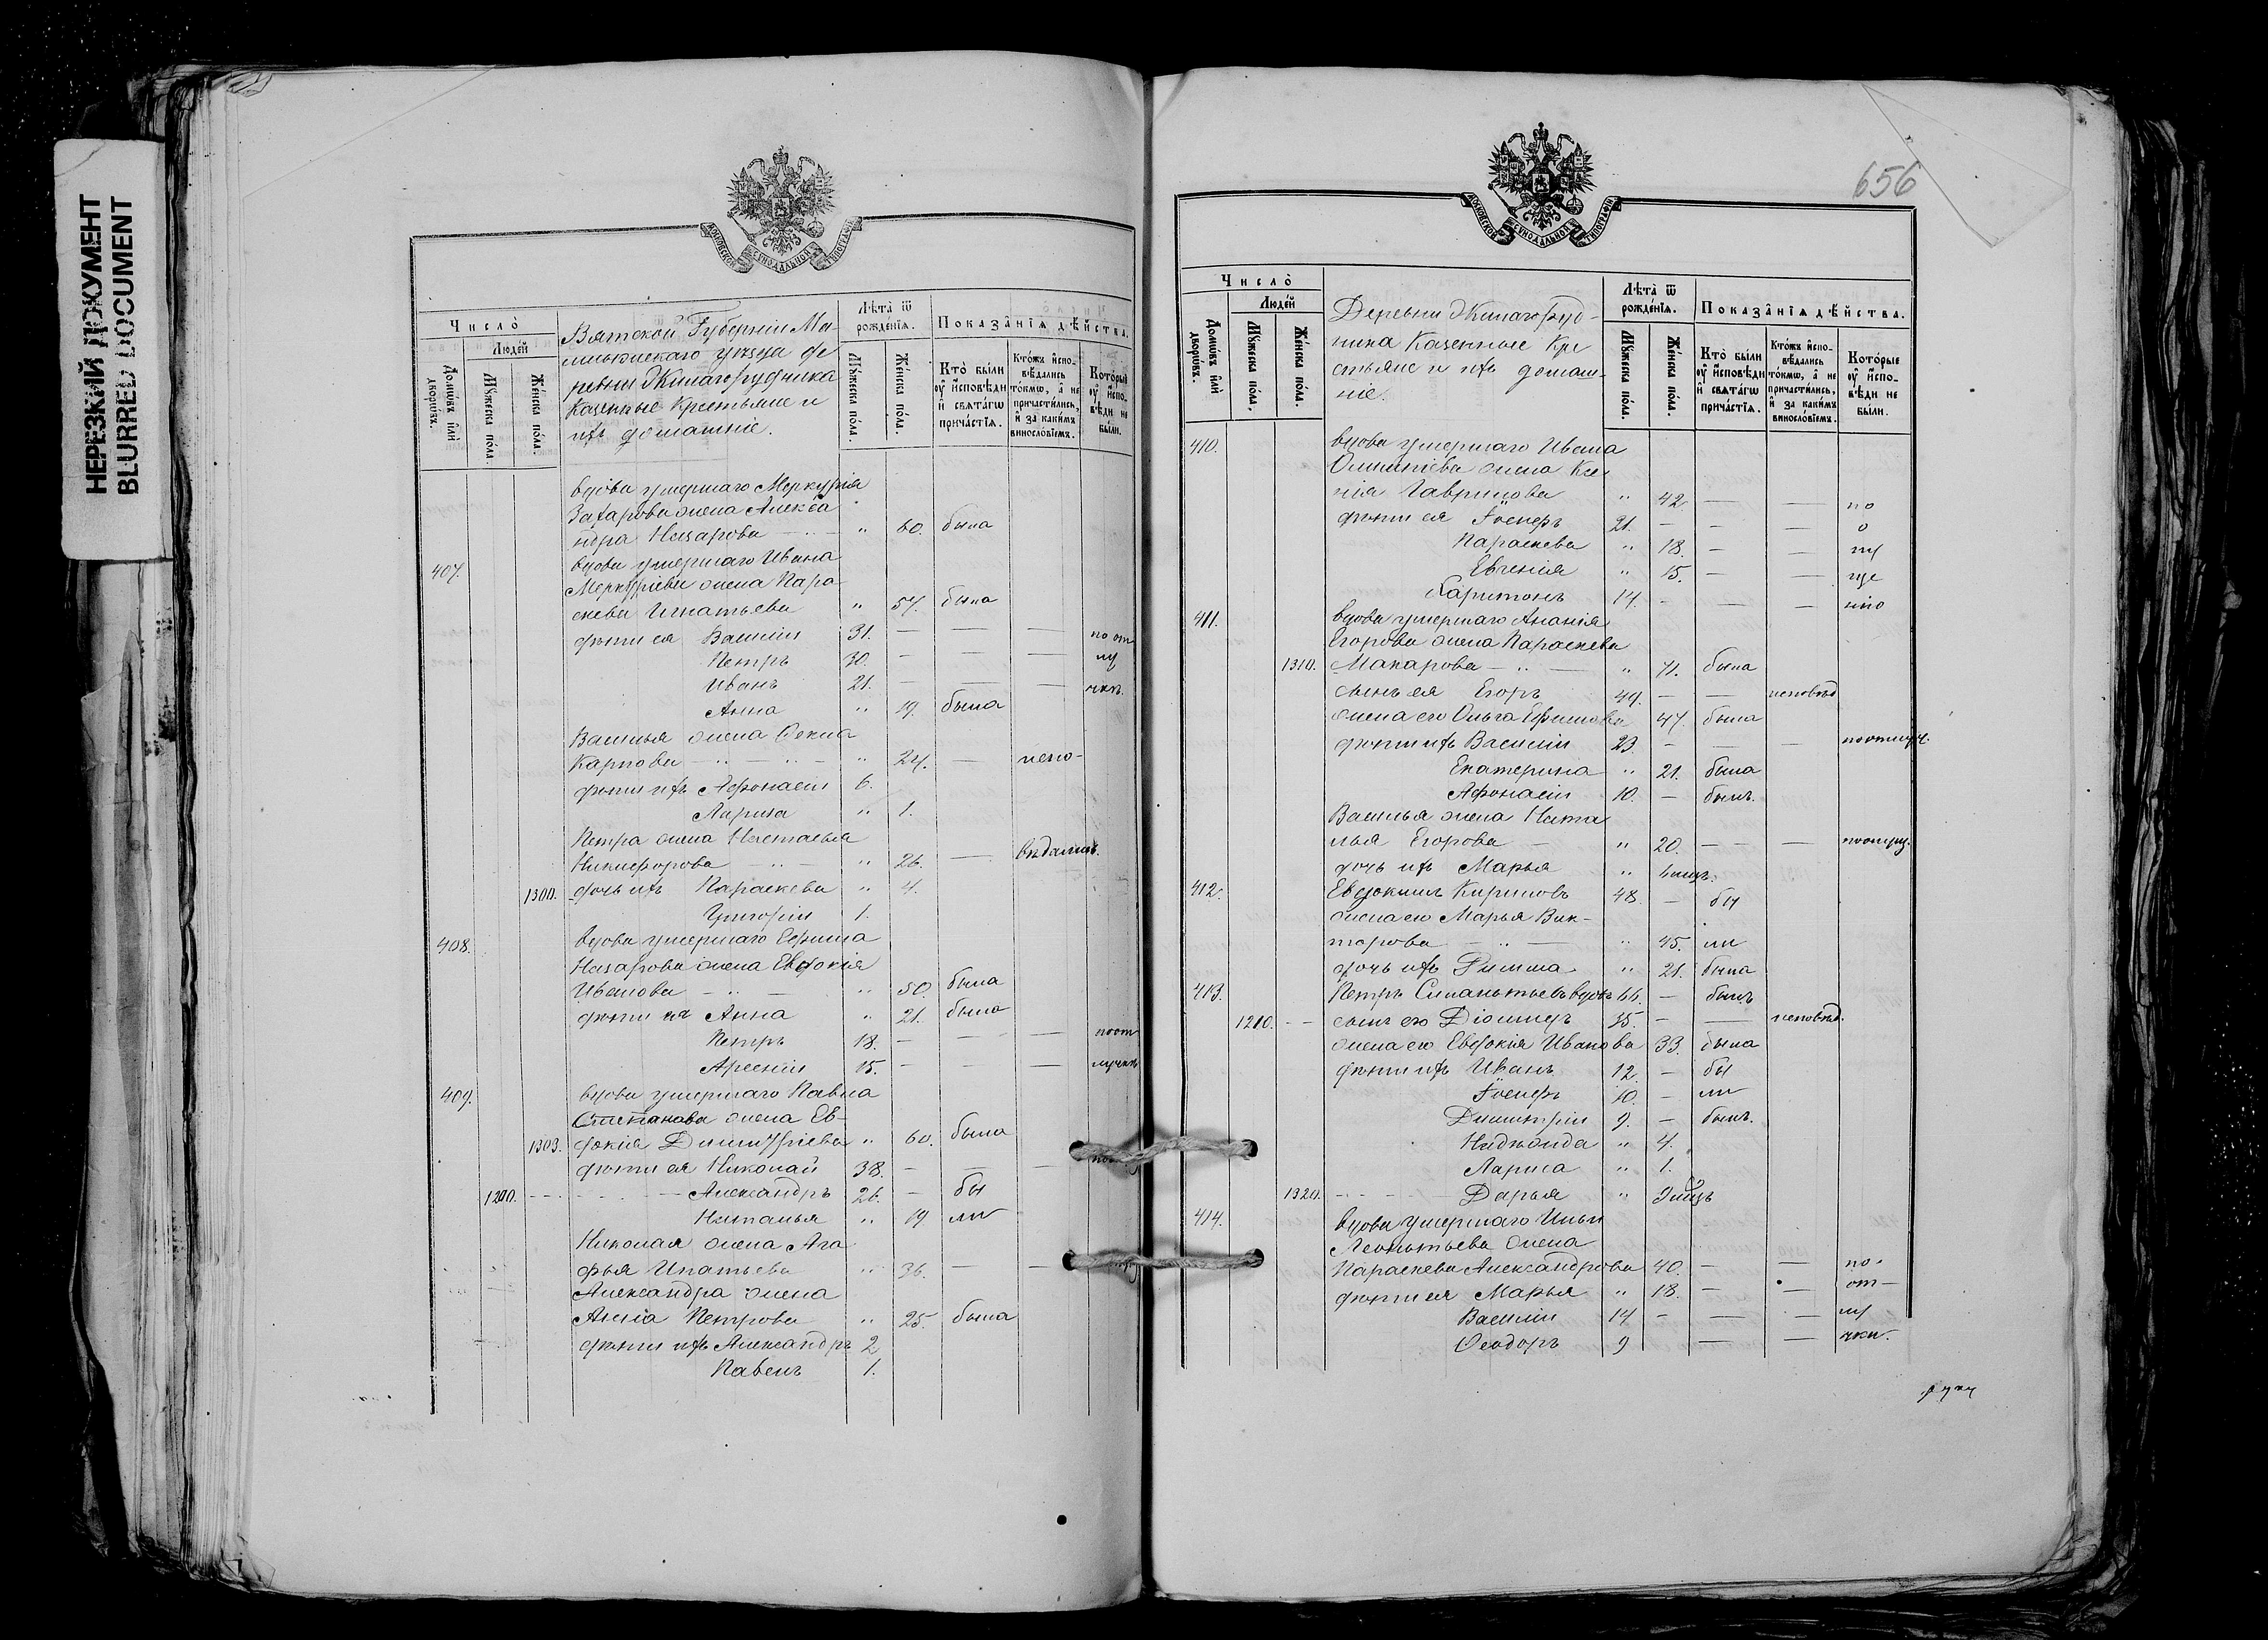 НЕРЕЗКИЙ ДОКУМЕНТ
BLURRED DOCUMENT
МОСКОВСКОЙ СѴНОДАЛЬНОЙ ТѴПОГРАФІИ
Число̀
Людей
Домѡвъ или дворѡвъ.
Мꙋжеска пола.
Женска пола.
Вятской Губерніи Ма-
лмыжскаго уѣзда де
ревни Жилагорудника
Казенные Крестьяне и
ихъ домашніе.
Лѣта ѿ рожденїѧ.
Мꙋжеска пола.
Женска пола.
Показанїѧ дѣйства.
Кто были ꙋ исповѣди и свѧтагѡ причастїѧ.
Ктожъ исповѣдались токмѡ, а не причастились, и за какимъ винословїемъ.
Которые ꙋ исповѣди не были.
вдова умершаго Меркурія
Захарова жена Алекса
ндра Назарова — " 60. была
407. вдова умершаго Ивана
Меркуріева жена Пара-
скева Игнатьева " 57. была
дѣти ея Василій 31. — — — по от
Петръ 30. — — — лу
Иванъ 21. — — — чкѣ.
Анна " 19. была
Василья жена Фекла
Карпова " 24. — испо-
дѣти ихъ Афонасій 6.
Лариса " 1.
Петра жена Настасья
Никифорова " 26. — вѣдались.
1300. дочь ихъ Параскева " 4.
Григорій 1.
408. вдова умершаго Ефима
Назарова жена Евдокія
Иванова " 50. была
дѣти ея Анна " 21. была
Петръ 18. — — — по от
Арсеній 15. — — — лучкѣ
409. вдова умершаго Павла
Степанова жена Ев-
1303. докія Димитріева " 60. была
дѣти ея Николай 38. — — —
1200. Александръ 26. — бы
Наталья " 19 ли
Николая жена Ага
фья Ипатьева " 36. — —
Александра жена
Анна Петрова " 25. была
дѣти ихъ Александръ 2
Павелъ 1.
656
МОСКОВСКОЙ СѴНОДАЛЬНОЙ ТѴПОГРАФІИ
Число̀
Людей
Домѡвъ или дворѡвъ.
Мꙋжеска пола.
Женска пола.
Деревни Жилагоруд-
ника Казенные Кре
стьяне и ихъ домаш-
ніе.
Лѣта ѿ рожденїѧ.
Мꙋжеска пола.
Женска пола.
Показанїѧ дѣйства.
Кто были ꙋ исповѣди и свѧтагѡ причастїѧ.
Ктожъ исповѣдались токмѡ, а не причастились, и за какимъ винословїемъ.
Которые ꙋ исповѣди не были.
410. вдова умершаго Ивана
жена Ксе
нія Гаврилова " 42. — — по
дѣти ея Іосифъ 21. — — — о
Параскева " 18. — —
Евгенія " 15. — —
Харитонъ 14. — — —
411. вдова умершаго Ананія
Егорова жена Параскева
1310. Макарова — " 71. была
сынъ ея Егоръ 49. — — исповѣд
жена его Ольга Ефимова 47. была
дѣти ихъ Василій 23. — — — по отлуч.
Екатерина " 21. была
Афонасій 10. — былъ.
Василья жена Ната
лья Егорова — " 20. — — —
дочь ихъ Марья "
412. Евдокимъ Кириловъ 48. — бы
жена его Марья Вик-
торова — " 45. ли
дочь ихъ Римма " 21. была
413. Петръ Силантьевъ вдовъ 66. — былъ
1210. сынъ его Діомидъ 35. — — исповѣд.
жена его Евдокія Иванова 33. была
дѣти ихъ Иванъ 12. — бы
Іосифъ 10. — ли
Димитрій 9. — былъ.
Надѣжда " 4.
Лариса " 1.
1320. Дарья "
414. вдова умершаго Ильи
Леонтьева жена
Параскева Александрова 40. — — по-
дѣти ея Марья " 18. — — от-
Василій 14 — — — лу
Ѳеодоръ 9 — — чки.
руку